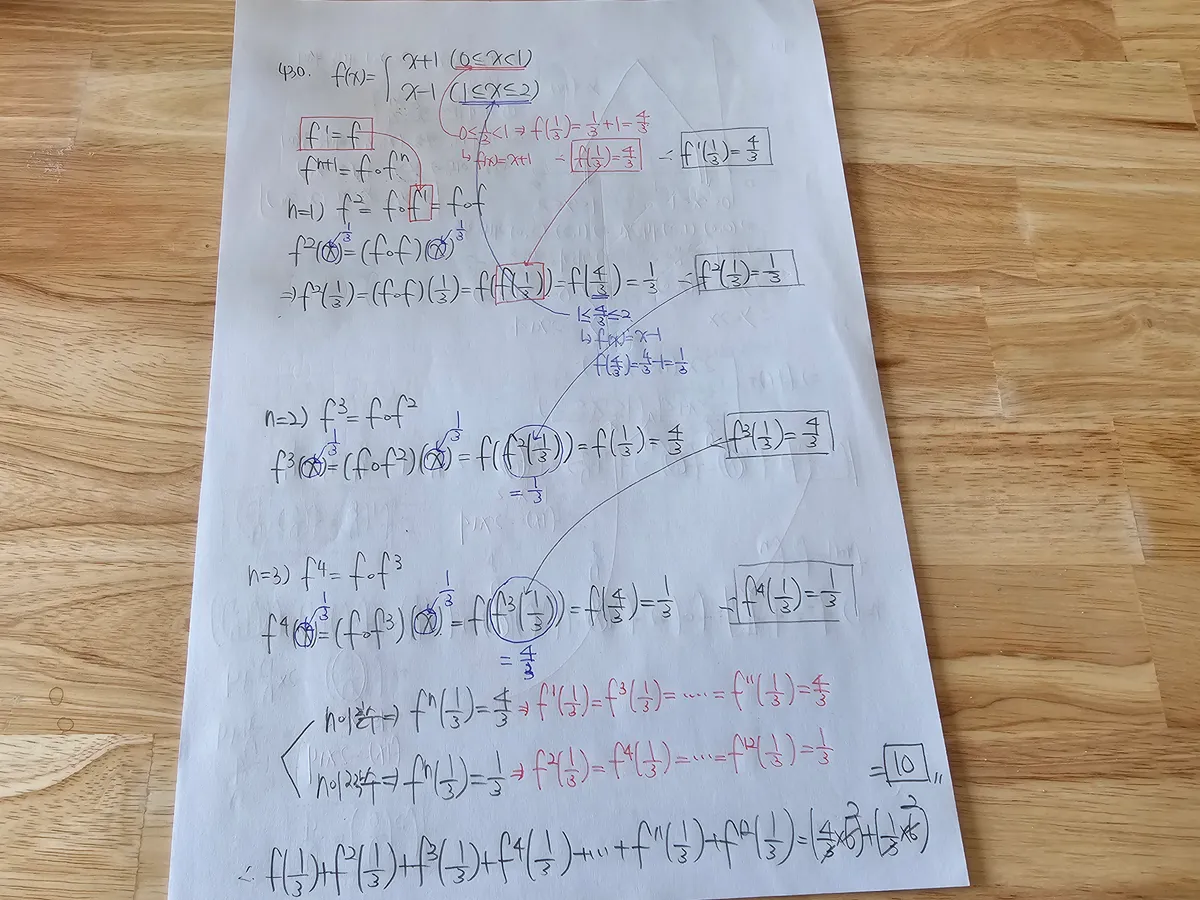 430. f(x)= { x+1 (0≤x<1)
x-1 (1≤x≤2)
0≤1/3<1 ⇒ f(1/3)=1/3+1=4/3
↳ f(x)=x+1 ∴ f(1/3)=4/3 ∴ f¹(1/3)=4/3
f¹=f
fⁿ⁺¹=f∘fⁿ
n=1) f²=f∘f¹=f∘f
f²(x)=(f∘f)(x) 1/3 1/3
⇒f²(1/3)=(f∘f)(1/3)=f(f(1/3))=f(4/3)=1/3 ∴ f²(1/3)=1/3
1≤4/3≤2
↳ f(x)=x-1
f(4/3)=4/3-1=1/3
n=2) f³=f∘f²
f³(x)=(f∘f²)(x)=f(f²(1/3))=f(1/3)=4/3 ∴ f³(1/3)=4/3 1/3 1/3
=1/3
n=3) f⁴=f∘f³
f⁴(x)=(f∘f³)(x)=f(f³(1/3))=f(4/3)=1/3 ∴ f⁴(1/3)=1/3 1/3 1/3
=4/3
n이 홀수⇒ fⁿ(1/3)=4/3 ⇒ f¹(1/3)=f³(1/3)=·····=f¹¹(1/3)=4/3
n이 짝수⇒ fⁿ(1/3)=1/3 ⇒ f²(1/3)=f⁴(1/3)=····=f¹²(1/3)=1/3
∴ f(1/3)+f²(1/3)+f³(1/3)+f⁴(1/3)+···+f¹¹(1/3)+f¹²(1/3)=(4/3×6)+(1/3×6) 2 2
=10